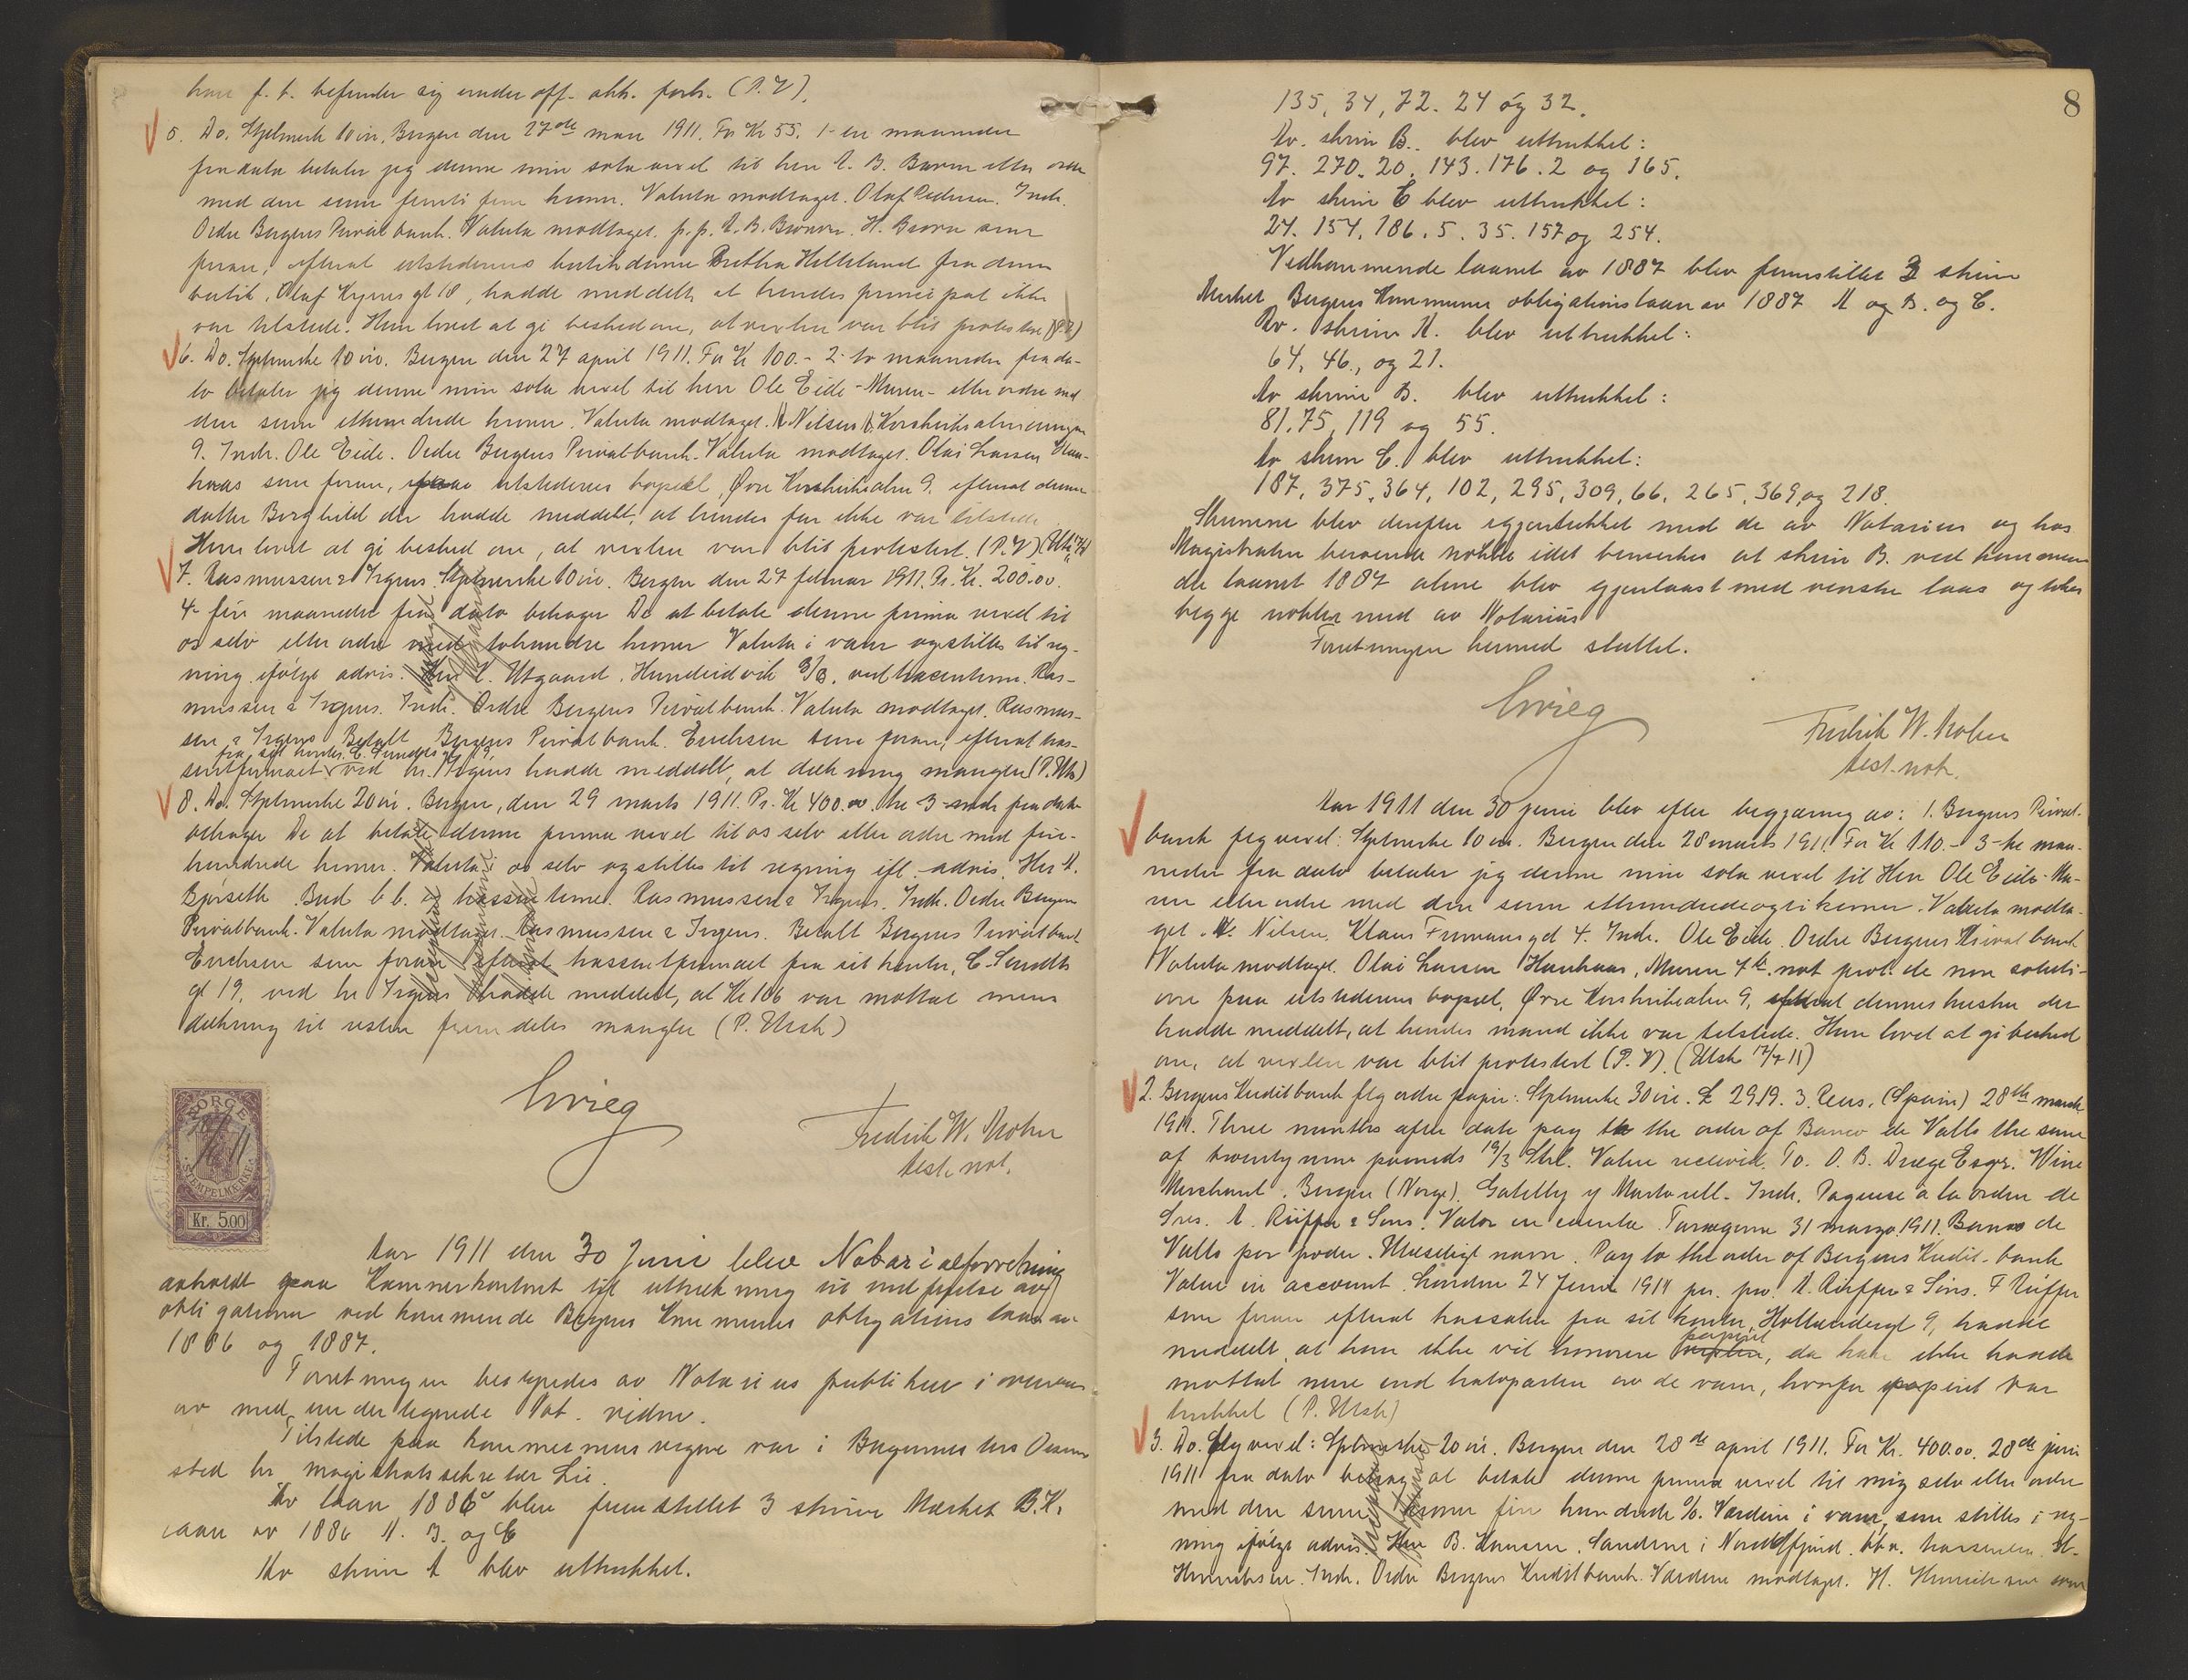 han f. t. befinder sig under off. akk. forh. (P. V).
5. Do. Stplmerk 10 øre. Bergen den 27de mars 1911. For Kr 55. 1- en maaneder
fra dato betaler jeg denne min sola vexel til herr A. B. Bavn eller ordre
med den sum femti fem kroner. Valuta modtaget. Olaf Pedersen. Indr.
Ordre Bergens Privatbank. Valuta modtaget. p.p. A. B. H. som
foran, efterat utstederens butikdame Bretha Helleland fra dennes
butik, Olaf Kyrres gt 18, hadde meddelt, at hendes principal ikke
var tilstede. Hun lovet at gi besked om, at vexlen var blit protestert (P.V)
6. Do. Stplmerke 10 øre. Bergen den 27 april 1911. For Kr 100.- 2- to maaneder fra da-
to betaler jeg denne min sola vexel til herr Ole Eide - Muren - eller ordre med
den sum etthundrede kroner. Valuta modtaget. A. Nilsen. Korskirkealmenningen
9. Indr. Ole Eide. Ordre Bergens Privatbank. Valuta modtaget. Olai Larsen Hau-
haas som foran, paa utstederens bopæl, Øvre Korskirkealm 9. efterat dennes
datter Borghild der hadde meddelt, at hendes far ikke var tilstede
Hun lovet at gi besked om, at vexlen var blit protestert. (P. V)
7. Rasmussen & Irgens. Stplmerke 10 øre. Bergen den 27 februar 1911. Pr. Kr. 200.00.
4- fire maaneder fra dato behager De at betale denne prima vexel til
os selv eller ordre med tohundre kroner Valuta i varer og stilles til reg-
ning ifølge advis. Herr L. Utgaard. Hundeidvik S/B. vedtas Ras-
mussen & Irgens. Indr. Ordre Bergens Privatbank. Valuta modtaget. Rasmus-
sen & Irgens Betalt Bergens Privatbank. Erichsen som foran, efterat tras-
fra sit kontor, C. Sundts gt 19,
sentfirmaet ved hr. Irgens hadde meddelt, at dækning mangler (P. Utr)
8. Do. Stplmerke 20 øre. Bergen, den 29 marts 1911. Pr. Kr 400.00. tre 3- mdr fra dato
behager De at betale denne prima vexel til os selv eller ordre med fire-
hundrede kroner. Valuta i os selv og stilles til regning ifl. advis. Herr A.
Bjørseth Bud b.b. Rasmussen & Irgens. Indr. Ordre Bergens
Privatbank. Valuta modtaget. Rasmussen & Irgens. Betalt Bergens Privatbank
Erichsen som foran efterat trassentfirmaet fra sit kontor, C. Sundts
gt 19, ved hr Irgens hadde meddelt, at Kr 106 var mottat mens
dækning til resten fremdeles mangler (P. Utsk)
Grieg
Fredrik W. Mohn
test. not.
NORGE
STEMPELMÆRKE
Kr. 5.00
Aar 1911 den 30 Juni blev Notarialforretning
avholdt paa Kæmnerkontoret til uttrækning til indfrielse av
obligationer vedkommende Bergens Kommunes obligationslaan av
1886 og 1887.
Forretningen bestyredes av Notarius publikus i overvær
av med undertegnede Not. vidne.
Tilstede paa kommunens vegne var i Bugermesters
sted hr. magistratssekretær Lie.
Av laan 1886 blev fremstillet 3 skrin Mærket B.K.
laan av 1886 A. B. og C
Av skrin A blev uttrukket.
8
135, 34, 72. 24 og 32.
Av. skrin B. blev uttrukket:
97. 270. 20. 143. 176. 2 og 165.
Av skrin C blev uttrukket:
24. 154. 186. 5. 35. 157 og 254.
Vedkommende laanet av 1887 blev fremstillet 3 skrin
Merket Bergens Kommunes obligationslaan av 1887 A og B. og C.
Av. skrin A. blev uttrukket:
64, 46., og 21.
Av skrin B. blev uttrukket:
81. 75, 119 og 55.
Av skrin C. blev uttrukket:
187, 375, 364, 102, 295, 309, 66, 265, 369, og 218.
Skrinene blev derefter igjenlukket med de av Notarius og hos
Magistraten beroende nøkler idet bemerkes at skrin B. vedkommen
de laanet 1887 alene blev gjenlaast med venstre laas og
begge nøkler med av Notarius
Forretningen hermed sluttet.
Grieg
Fredrik W. Mohn
test. not.
Aar 1911 den 30 juni blev efter begjæring av: 1. Bergens Privat-
bank flg vexel: Stplmerke 10 øre. Bergen den 28 marts 1911. For Kr 110.- 3- tre maa-
neder fra dato betaler jeg denne min sola vexel til Herr Ole Eide - Mu-
ren eller ordre med den sum etthundredeogti kroner. Valuta modta-
get. A. Nilsen. Klaus gd 4. Indr. Ole Eide. Ordre Bergens Privatbank
Valuta modtaget. Olai Larsen Hauhaas, Muren 4b. not. prot. de non soluti-
one paa utstederens bopæl, Øvre Korskirkealm 9, efterat dennes hustru der
hadde meddelt, at hendes mand ikke var tilstede. Hun lovet at gi besked
om, at vexlen var blit protestert (P. V). (Utsk 12/7 11)
2. Bergens Kreditbank flg ordre papir: Stplmerke 30 øre. £ 29.19. 3. Reus. (Spain) 28th march
1911. Three months after date pay to the order of Banco de Valls the sum
of twenty nine pounds 19/3 Strl. Value received. To. O. B. Dræge Esqr. Wine
Merchant. Bergen (Norge). Gatelly y Martorell. Indr. Paguese a la orden de
Sres. A. Rüffer & Sons. Valor en cuenta. Tarragona 31 marzo. 1911. Banco de
Valls por poder. Ulæseligt navn. Pay to the order of Bergens Kredit-bank
Value in account. London 24 June 1911 per. pro. A. Rüffer & Sons. F Rüffer
som foran efterat trassaten fra sit kontor, Hollændergt 9, hadde
meddelt, at han ikke vil honorere vexlen papiret, da han ikke hadde
mottat mere end halvparten av de varer, hvorfor papiret var
trukket (P. Utsk)
3. Do. flg vexel: Splmerke 20 øre. Bergen den 28de april 1911. For Kr. 400.00. 28de juni
1911 fra dato behag at betale denne prima vexel til mig selv eller ordre
med den sum kroner fire hundrede %. Værdien i varer, som stilles i reg-
ning ifølge advis. Herr B. Hansen. Sandene i Nordfjord. bb. H.
Henrichsen. Indr. Ordre Bergens Kreditbank. Værdien modtaget. H. Henrichsen som